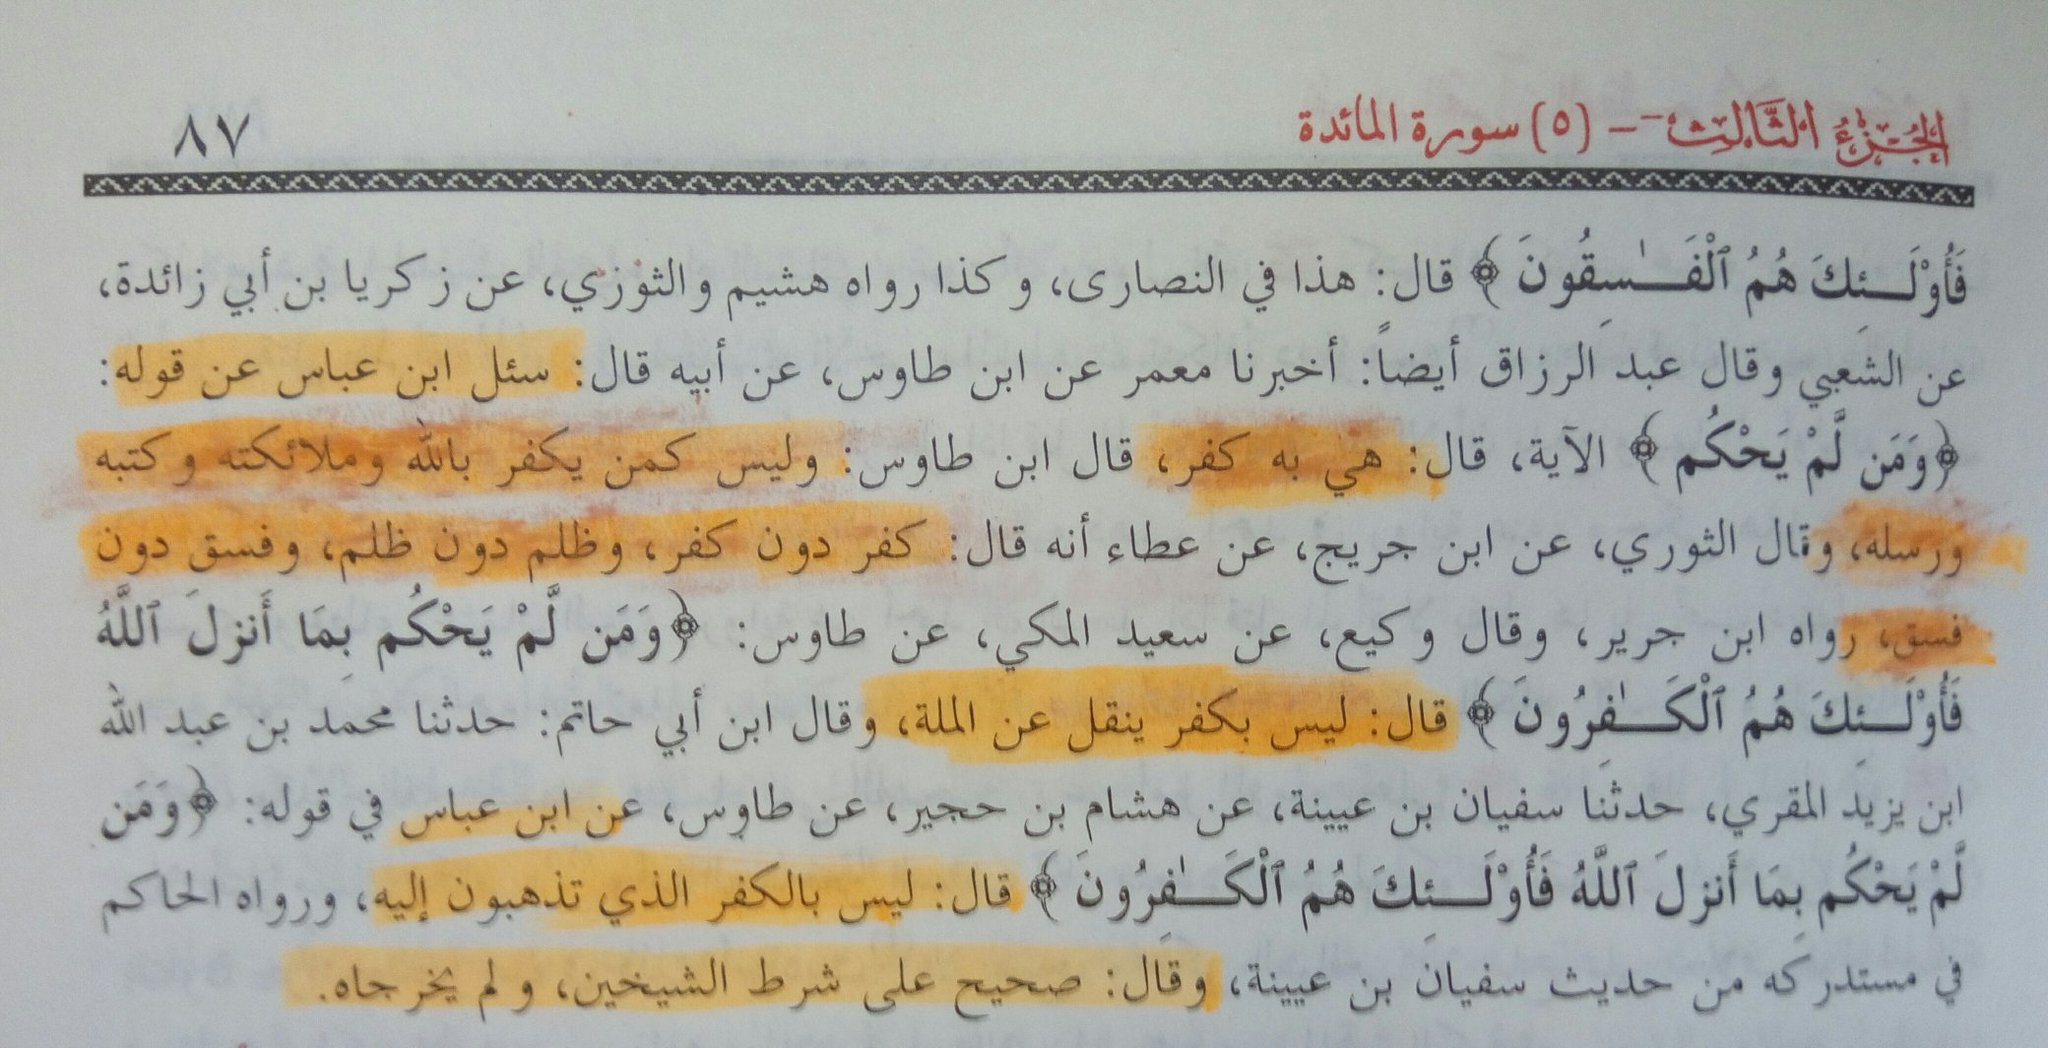 الجزء الثالث - (٥) سورة المائدة
٨٧
فَأُوْلَـٰئِكَ هُمُ ٱلْفَـٰسِقُونَ ﴾ قال: هذا في النصارى، وكذا رواه هشيم والثوري، عن زكريا بن أبي زائدة،
عن الشعبي وقال عبد الرزاق أيضاً: أخبرنا معمر عن ابن طاوس، عن أبيه قال: سئل ابن عباس عن قوله:
﴿وَمَن لَّمْ يَحْكُم ﴾ الآية، قال: هي به كفر، قال ابن طاوس: وليس كمن يكفر بالله وملائكته وكتبه
ورسله، وقال الثوري، عن ابن جريج، عن عطاء أنه قال: كفر دون كفر، وظلم دون ظلم، وفسق دون
فسق، رواه ابن جرير، وقال وكيع، عن سعيد المكي، عن طاوس: ﴿وَمَن لَّمْ يَحْكُم بِمَا أَنزلَ ٱللَّهُ
فَأُوْلَـٰئِكَ هُمُ ٱلْكَـٰفِرُونَ ﴾ قال: ليس بكفر ينقل عن الملة، وقال ابن أبي حاتم: حدثنا محمد بن عبد الله
ابن يزيد المقري، حدثنا سفيان بن عيينة، عن هشام بن حجير، عن طاوس، عن ابن عباس في قوله: ﴿وَمَن
لَّمْ يَحْكُم بِمَا أَنزلَ ٱللَّهُ فَأُوْلَـٰئِكَ هُمُ ٱلْكَـٰفِرُونَ ﴾ قال: ليس بالكفر الذي تذهبون إليه، ورواه الحاكم
في مستدركه من حديث سفيان بن عيينة، وقال: صحيح على شرط الشيخين، ولم يخرجاه.